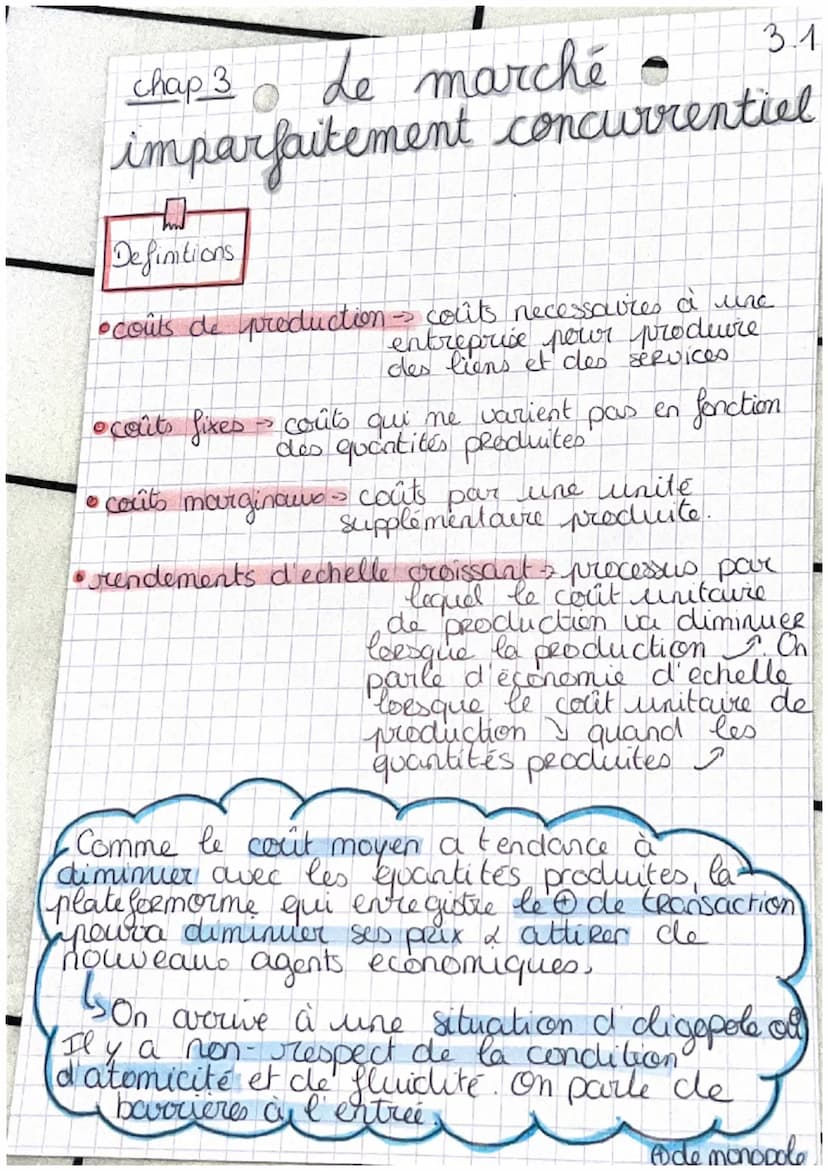 3.1
chap 3 Le marché
imparfaitement concurrentiel
Definitions
• coûts de production → coûts necessaires à une
entreprise pour produire
des biens et des services
• coûts fixes → coûts qui ne varient pas en fonction
des quantités produites
• coûts marginaux → coûts par une unité
supplémentaire produite.
• rendements d'echelle croissant → processus par
lequel le coût unitaire
de production va diminuer
lorsque la production ↗. On
parle d'économie d'echelle
lorsque le coût unitaire de
production ↘ quand les
quantités produites ↗
Comme le coût moyen a tendance à
diminuer avec les quantités produites, la
plateformorme qui enregistre le ⊕ de transaction
pourra diminuer ses prix & attirer de
nouveaux agents economiques.
↳ On arrive à une situation d'oligopole où
Il y a non-respect de la condition
d'atomicité et de fluidité. On parle de
barrières à l'entrée.
de monopole